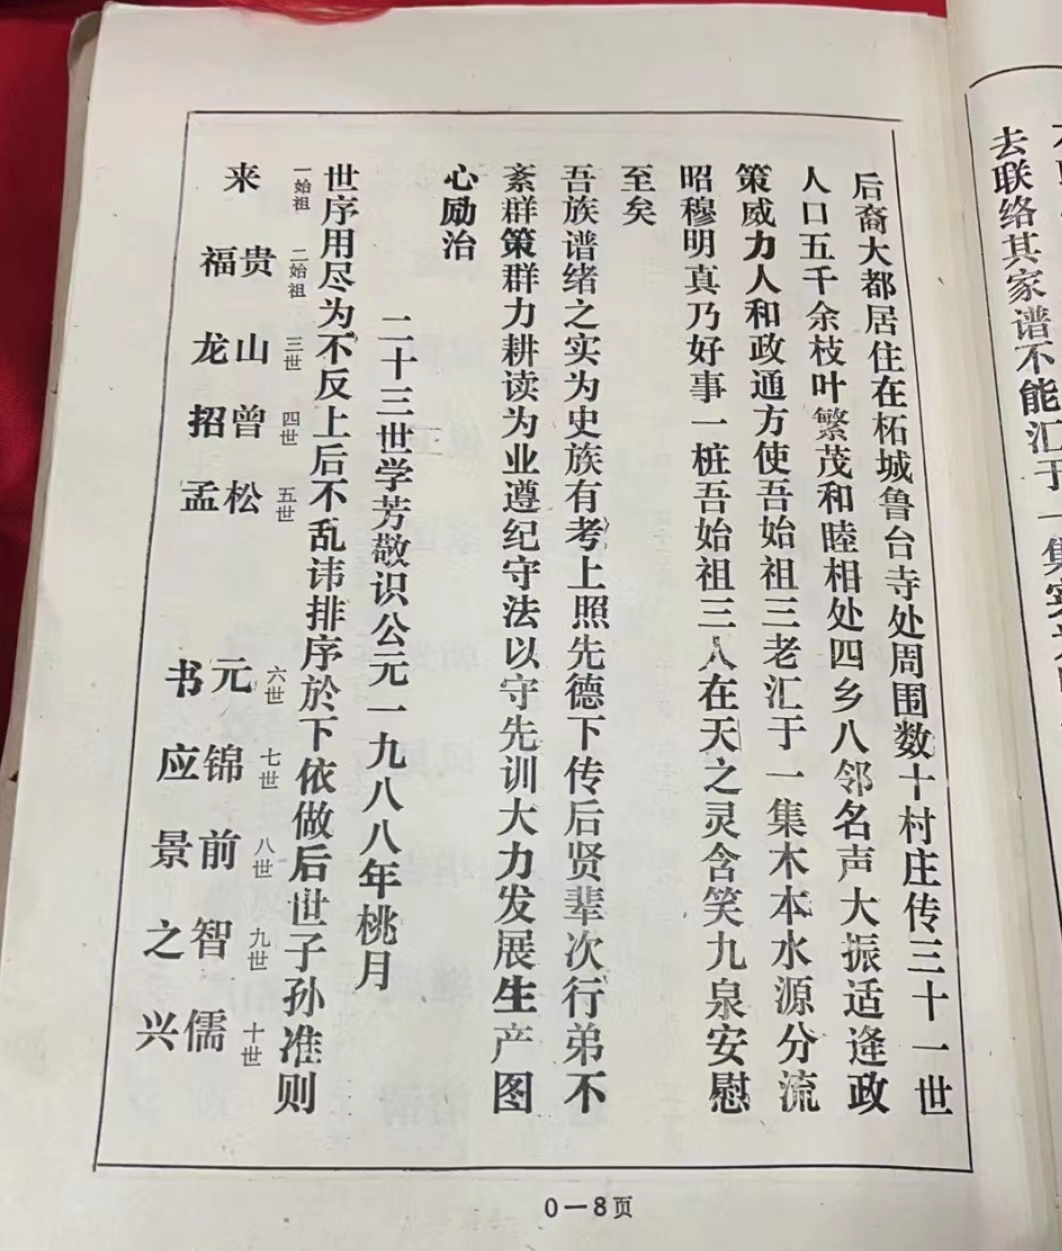 去联络其家谱不能汇于一集
后裔大都居住在柘城鲁台寺处周围数十村庄传三十一世
人口五千余枝叶繁茂和睦相处四乡八邻名声大振适逢政
策威力人和政通方使吾始祖三老汇于一集木本水源分流
昭穆明真乃好事一桩吾始祖三人在天之灵含笑九泉安慰
至矣
吾族谱绪之实为史族有考上照先德下传后贤辈次行弟不
紊群策群力耕读为业遵纪守法以守先训大力发展生产图
心励治
二十三世学芳敬识公元一九八八年桃月
世序用尽为不反上后不乱讳排序於下依做后世子孙准则
一始祖 来
二始祖 贵福
三世 山龙
四世 曾招
五世 松孟
六世 元书
七世 锦应
八世 前景
九世 智之
十世 儒兴
0—8页